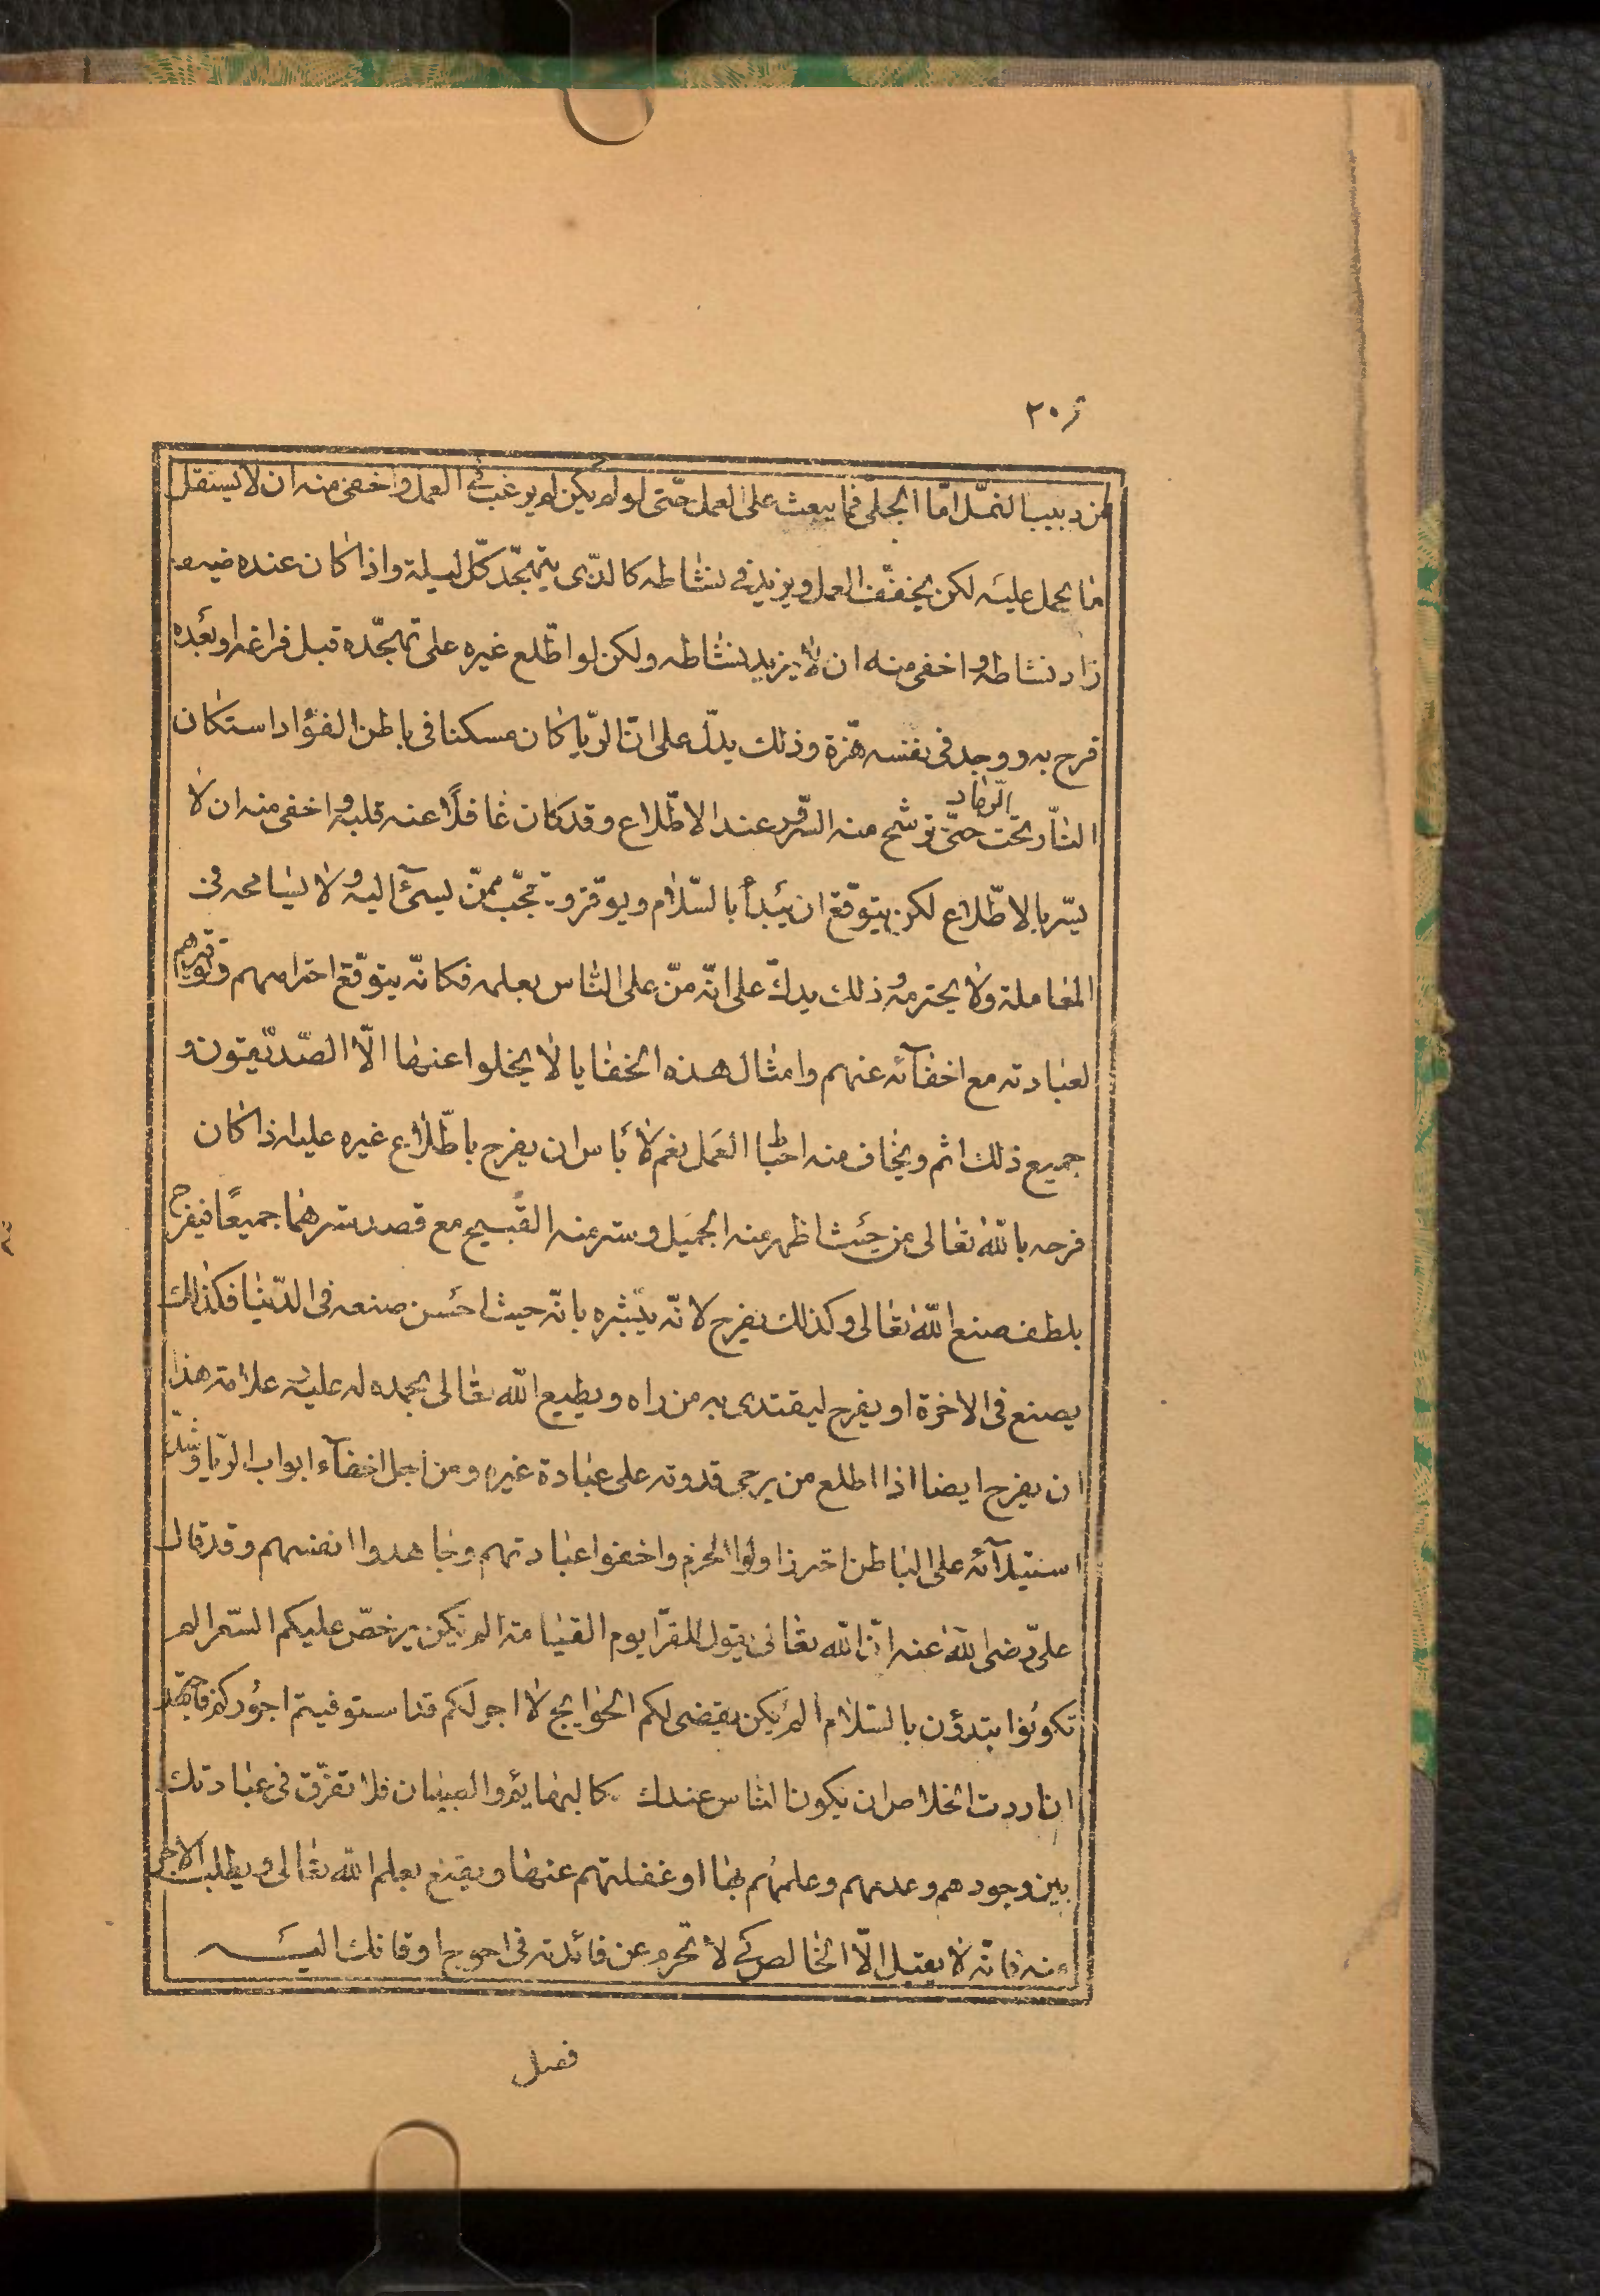 ٢٠٥
من دبيب النمّل امّا الجلىّ فما يبعث على العمل حتّى لو لم يكن لم يرغب فى العمل واخفى منه ان لا يستقل
ما يحمل عليه لكن يخفّف العمل ويزيد فى نشاطه كالذّى يتهجّد كلّ ليلة واذا كان عنده ضيف
زاد نشاطه واخفى منه ان لا يزيد نشاطه ولكن لو اطّلع غيره على تهجّده قبل فراغه او بعده
فرح به ووجد فى نفسه هزّة وذلك يدلّ على انّ الرّيا كان مسكنا فى باطن الفؤاد استكان
النّار تحت الرّماد حتّى ترشّح منه السّرور عند الاطّلاع وقد كان غافلًا عنه قلبه واخفى منه ان لا
يسّر بالاطّلاع لكن يتوقّع ان يبدأ بالسّلام ويوقّر ويتعجّب ممّن يسئ اليه ولا يسامحه فى
المعاملة ولا يحترمه وذلك يدلّ على انّه منّ على النّاس بعلمه فكانّه يتوقّع احترامهم وتوقيرهم
لعبادته مع اخفآئه عنهم وامثال هذه الخفايا لا يخلوا عنها الّا الصّدّيقون و
جميع ذلك اثم ويخاف منه احباط العمل نعم لا باس ان يفرح باطّلاع غيره عليه اذا كان
فرحه باللّه تعالى من حيث اظهر عنه الجميل وستر عنه القبيح مع قصد سترهما جميعًا فيفرح
بلطف صنع اللّه تعالى وكذلك يفرح لانّه يبشّره بانّه حيث احسن صنعه فى الدّنيا فكذلك
يصنع فى الاخرة او يفرح ليقتدى به من راه ويطيع اللّه تعالى بحمده له عليه علامة هذا
ان يفرح ايضا اذا اطلع من يرجى قدوته على عبادة غيره ومن اجل اخفآء ابواب الرّيا وشدّة
استيلآئه على الباطن احترز اولوا الحزم واخفوا عبادتهم وجاهدوا انفسهم وقد قال
علىّ رضى اللّه عنه انّ اللّه تعالى يقول للقرّا يوم القيامة الم تكن يرخصّ عليكم السّعر الم
تكونوا تبتدؤن بالسّلام الم يكن يقضى لكم الحوايج لا اجر لكم قد استوفيتم اجوركم فاجتهد
ان اردت الخلاص ان يكون النّاس عندك كالبهايم والصبيان فلا تفرّق فى عبادتك
بين وجودهم وعدمهم وعلمهم بها او غفلتهم عنها ويقنع بعلم اللّه تعالى ويطلب الاجر
منه فانّه لا يقبل الّا الخالص كى لا تحرم عن فائدته فى احوج اوقاتك اليه
فصل